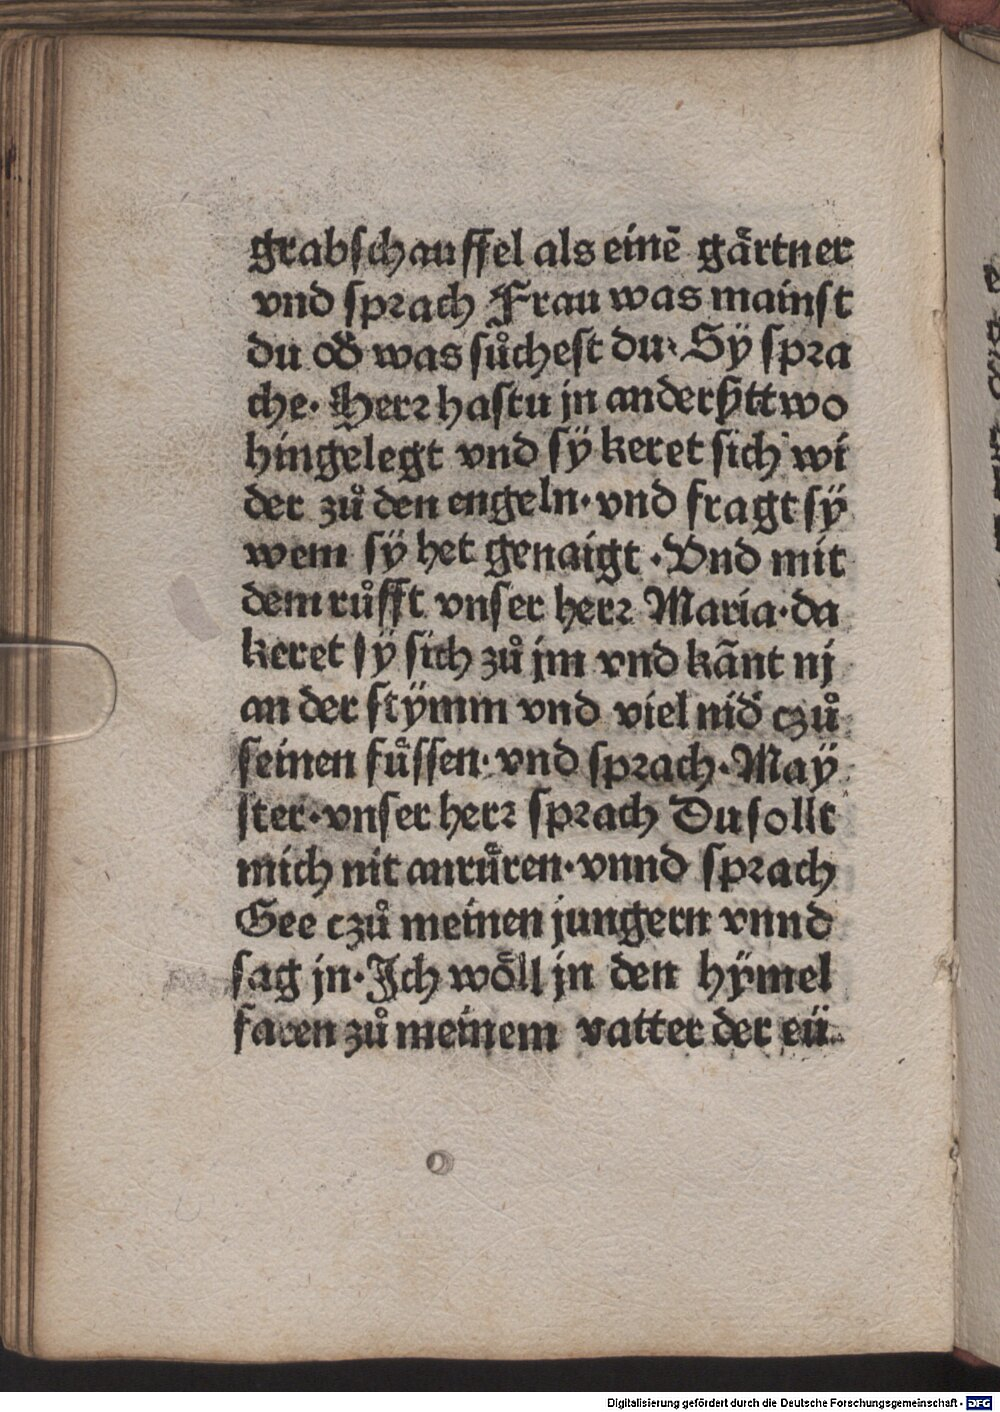 grabschauffel als einē gärtner
vnd sprach Frau was mainst
du od̓ was sůchest du. Sÿ spra
che. Herr hastu jn anderßtt wo
hingelegt vnd sÿ keret sich wi
der zů den engeln. vnd fragt sÿ
wem sÿ het genaigt. Vnd mit
dem růfft vnser herr Maria. da
keret sÿ sich zů jm vnd kānt nj
an der stÿmm vnd viel nid̓ czů
seinen fuͤssen. vnd sprach. Maÿ
ster. vnser herr sprach Du sollt
mich nit anruͤren. vnnd sprach
Gee czů meinen jungern vnnd
sag jn. Ich wöll jn den hÿmel
faren zů meinem vatter der eü
Digitalisierung gefördert durch die Deutsche Forschungsgemeinschaft - DFG